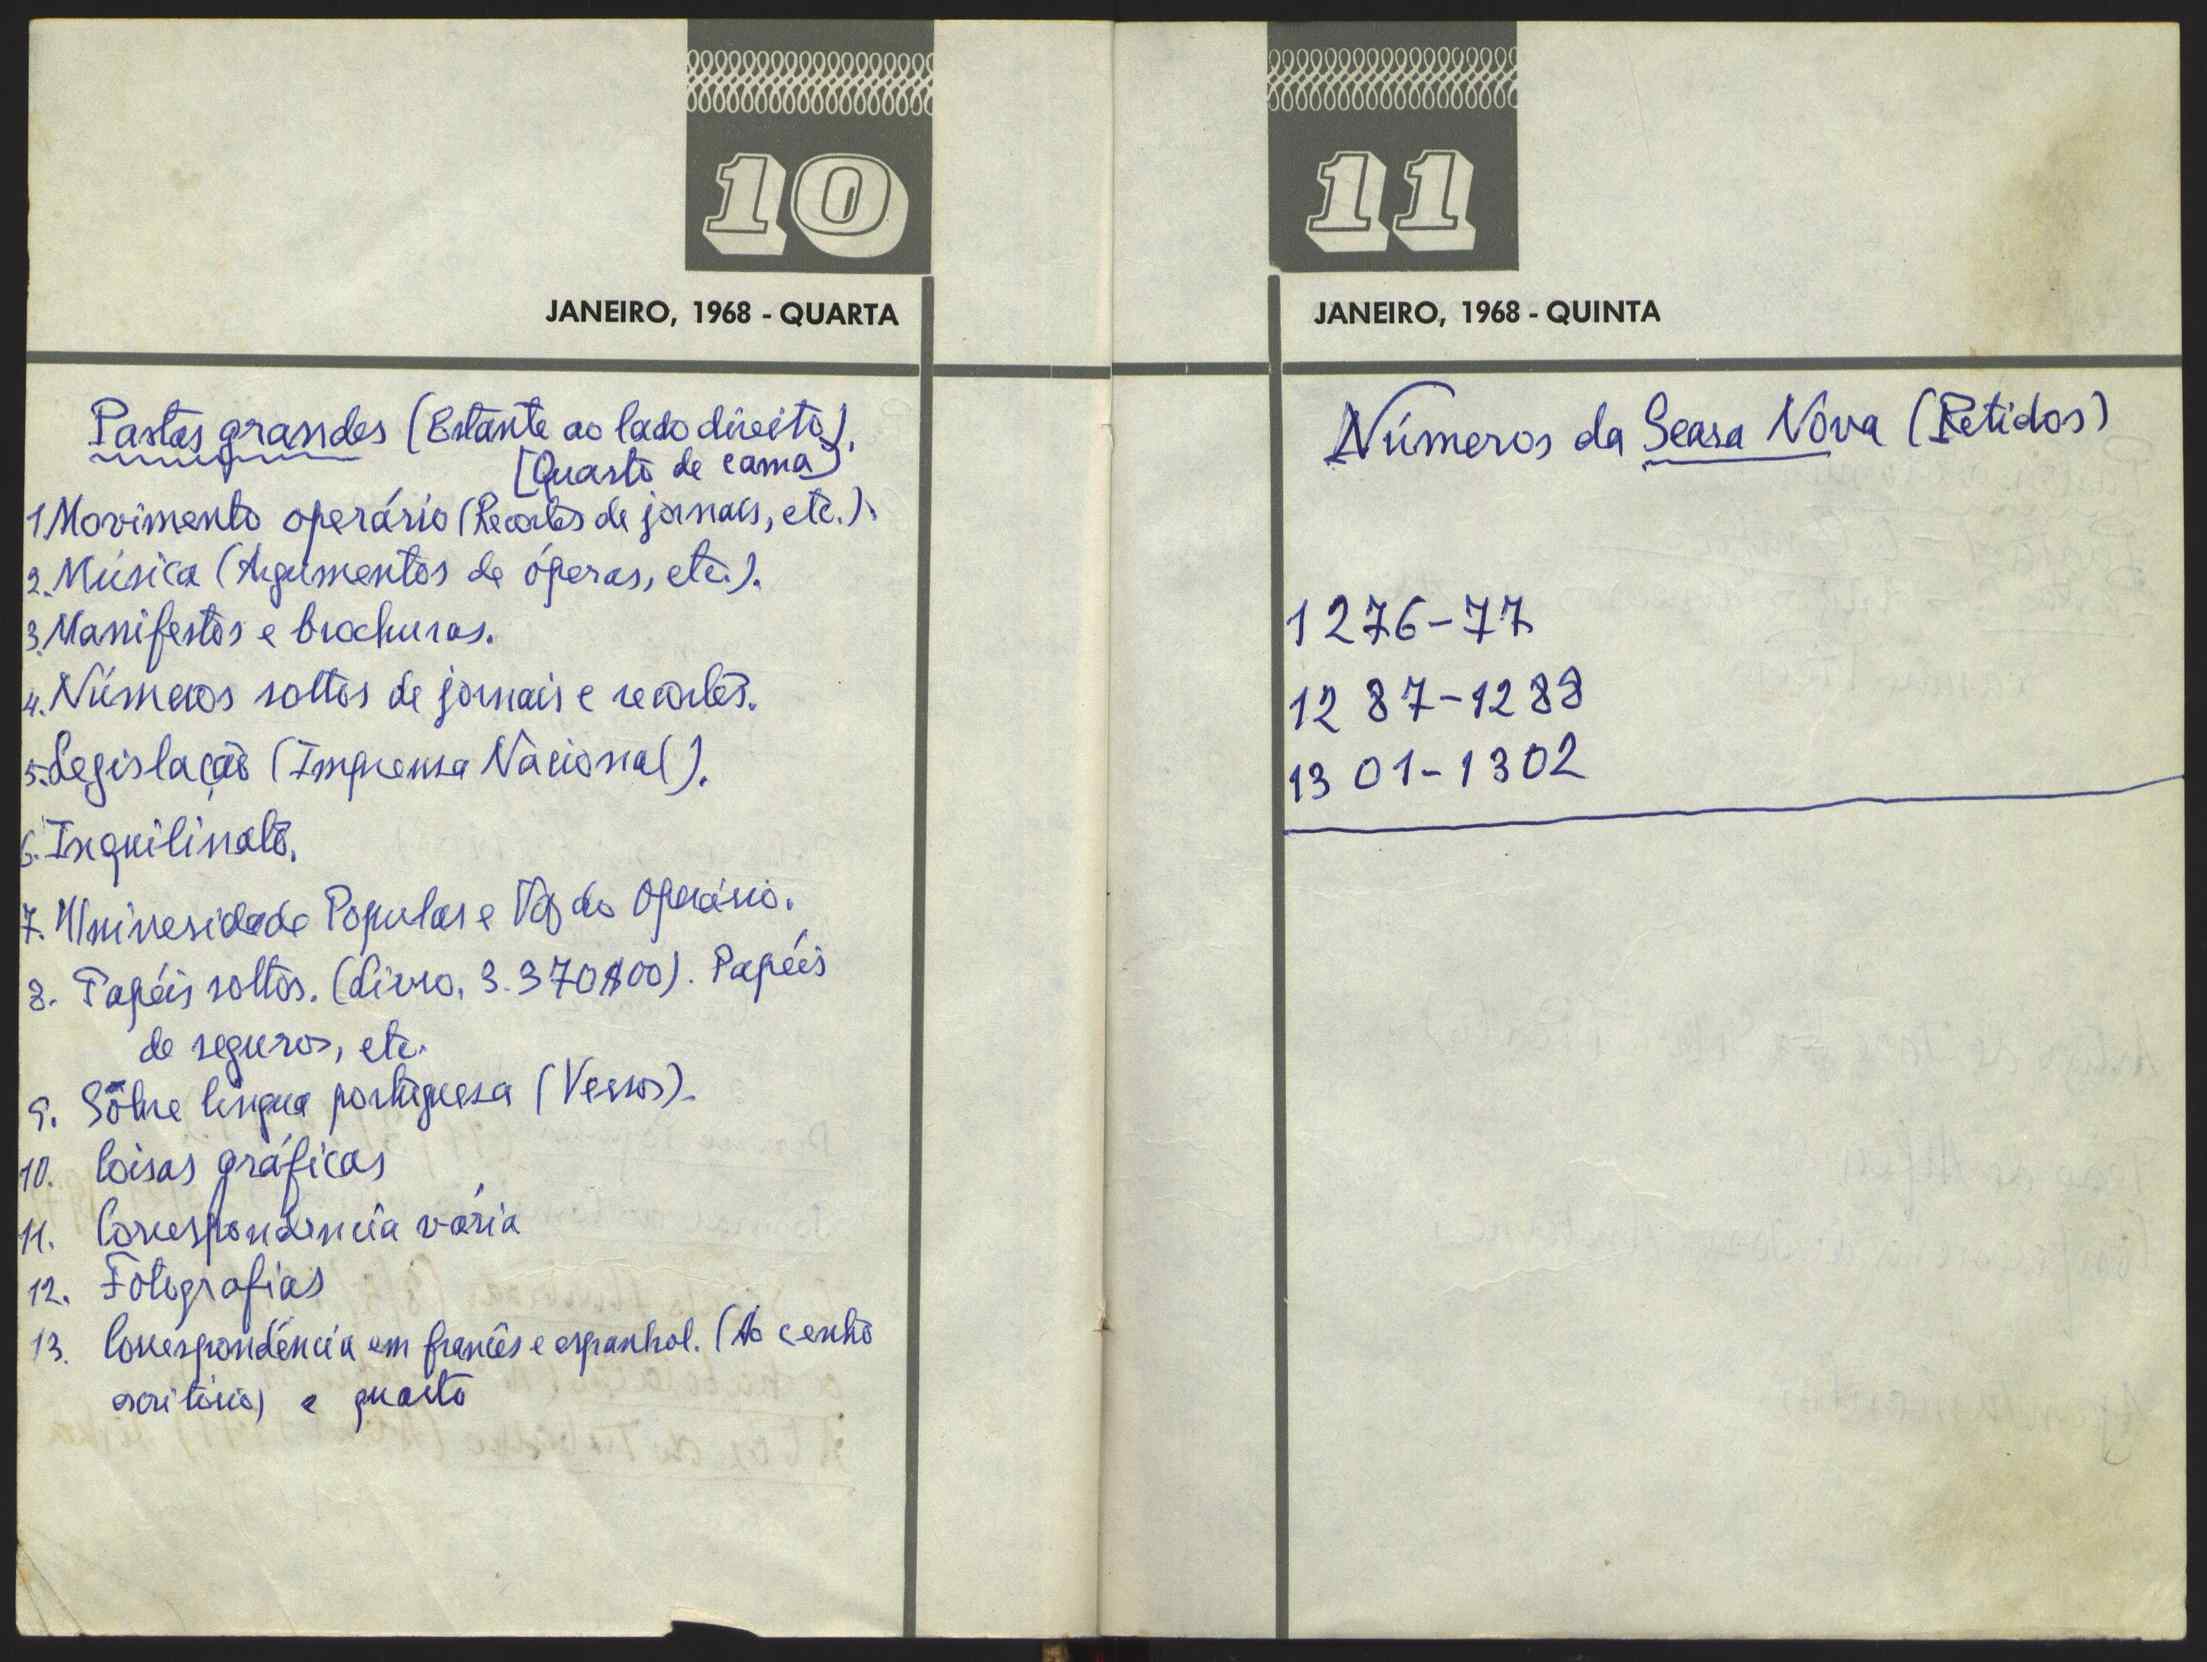 10
JANEIRO, 1968 - QUARTA
Pastas grandes (Estante ao lado direito).
[Quarto de cama]
1. Movimento operário (Recortes de jornais, etc.).
2. Música (Argumentos de óperas, etc.).
3. Manifestos e brochuras.
4. Números soltos de jornais e recortes.
5. Legislação (Imprensa Nacional).
6. Inquilinato.
7. Universidade Popular e Voz do Operário.
8. Papéis soltos. (Livro, 3.370$00). Papéis
de seguros, etc.
9. Sôbre língua portuguesa (Versos).
10. Coisas gráficas
11. Correspondência vária
12. Fotografias
13. Correspondência em francês e espanhol. (Ao centro
escritório) e quarto
11
JANEIRO, 1968 - QUINTA
Números da Seara Nova (Retidos)
1276-77
1287-1288
1301-1302